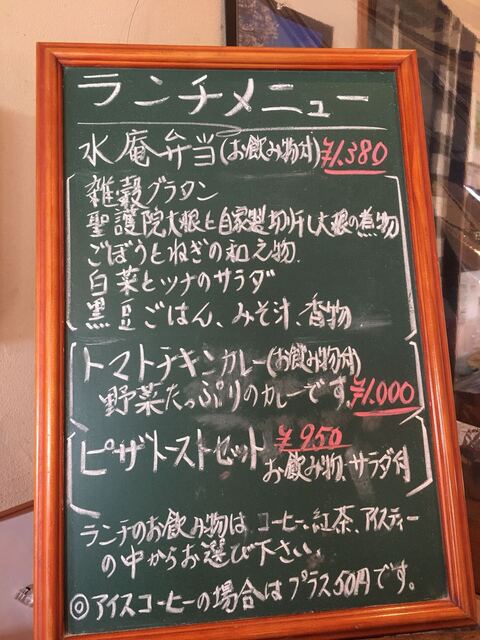 ランチメニュー
水庵弁当(お飲み物付)¥1,380
雑穀グラタン
聖護院大根と自家製切干し大根の煮物
ごぼうとねぎの和え物
白菜とツナのサラダ
黒豆ごはん、みそ汁、香物
トマトチキンカレー(お飲み物付)
野菜たっぷりのカレーです。¥1,000
ピザトーストセット ¥950
お飲み物、サラダ付
ランチのお飲み物は コーヒー、紅茶、アイスティー
の中からお選び下さい。
◎アイスコーヒーの場合は プラス50円です。